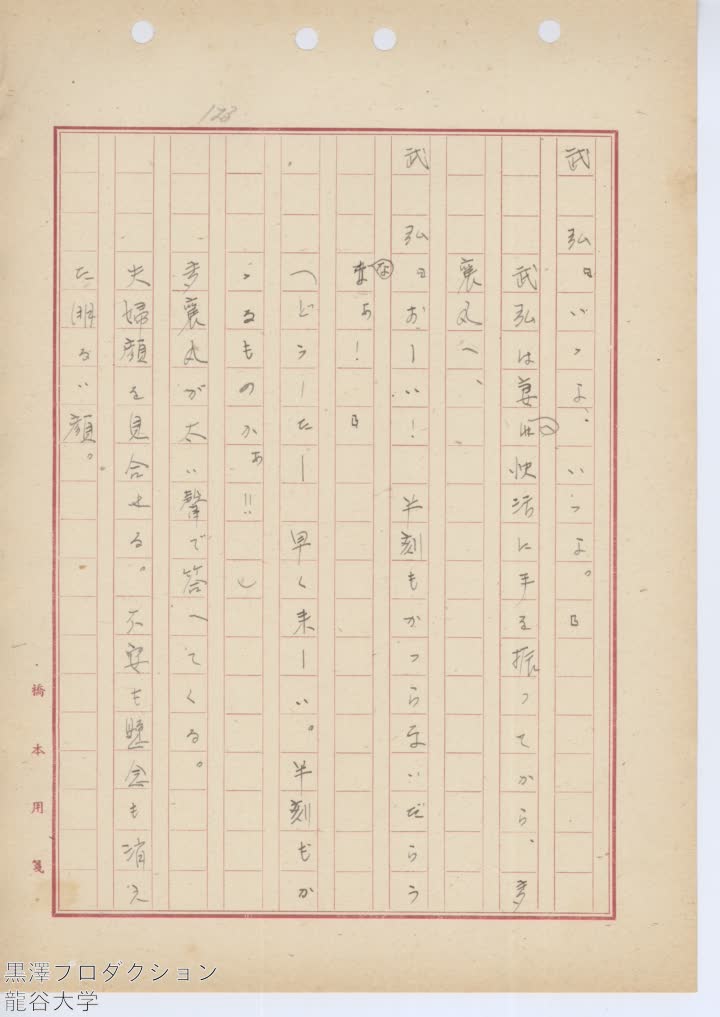 123
武　弘『いゝよ、いゝよ。』
武弘は妻に快活に手を振ってから、多
襄丸へ、
武　弘『おーい！　半刻もかゝらないだらう
なあ！』
（どうーたー　早く来ーい。半刻もか
ゝるものかあ!!）
多襄丸が太い聲で答へてくる。
夫婦顔を見合せる。不安も懸念も消え
た明るい顔。
橋本用箋
黒澤プロダクション
龍谷大学